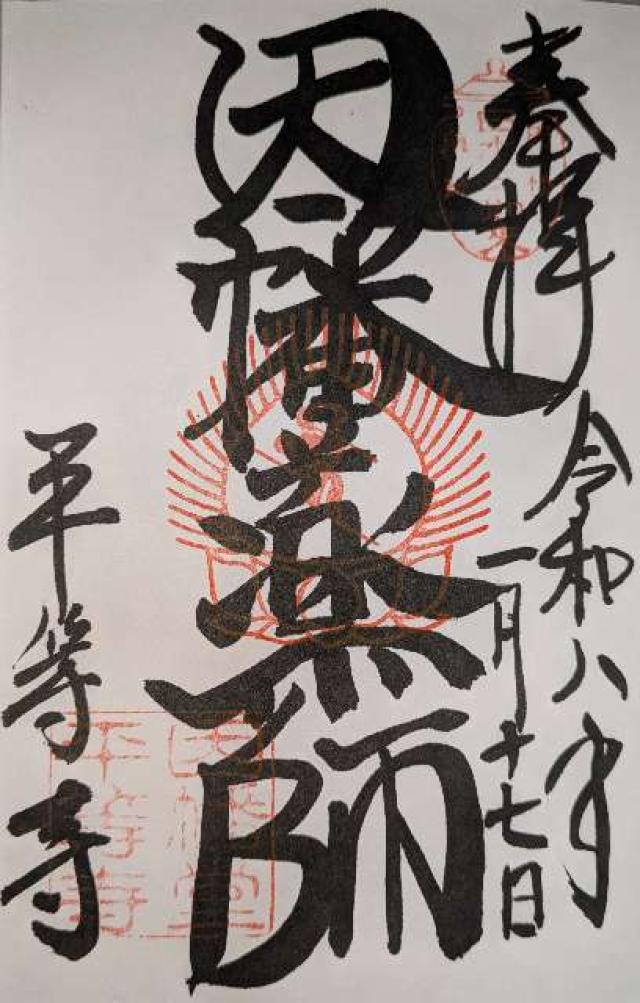 奉拝
令和八年
一月十七日
因幡薬師
平等寺
因幡堂
平等寺